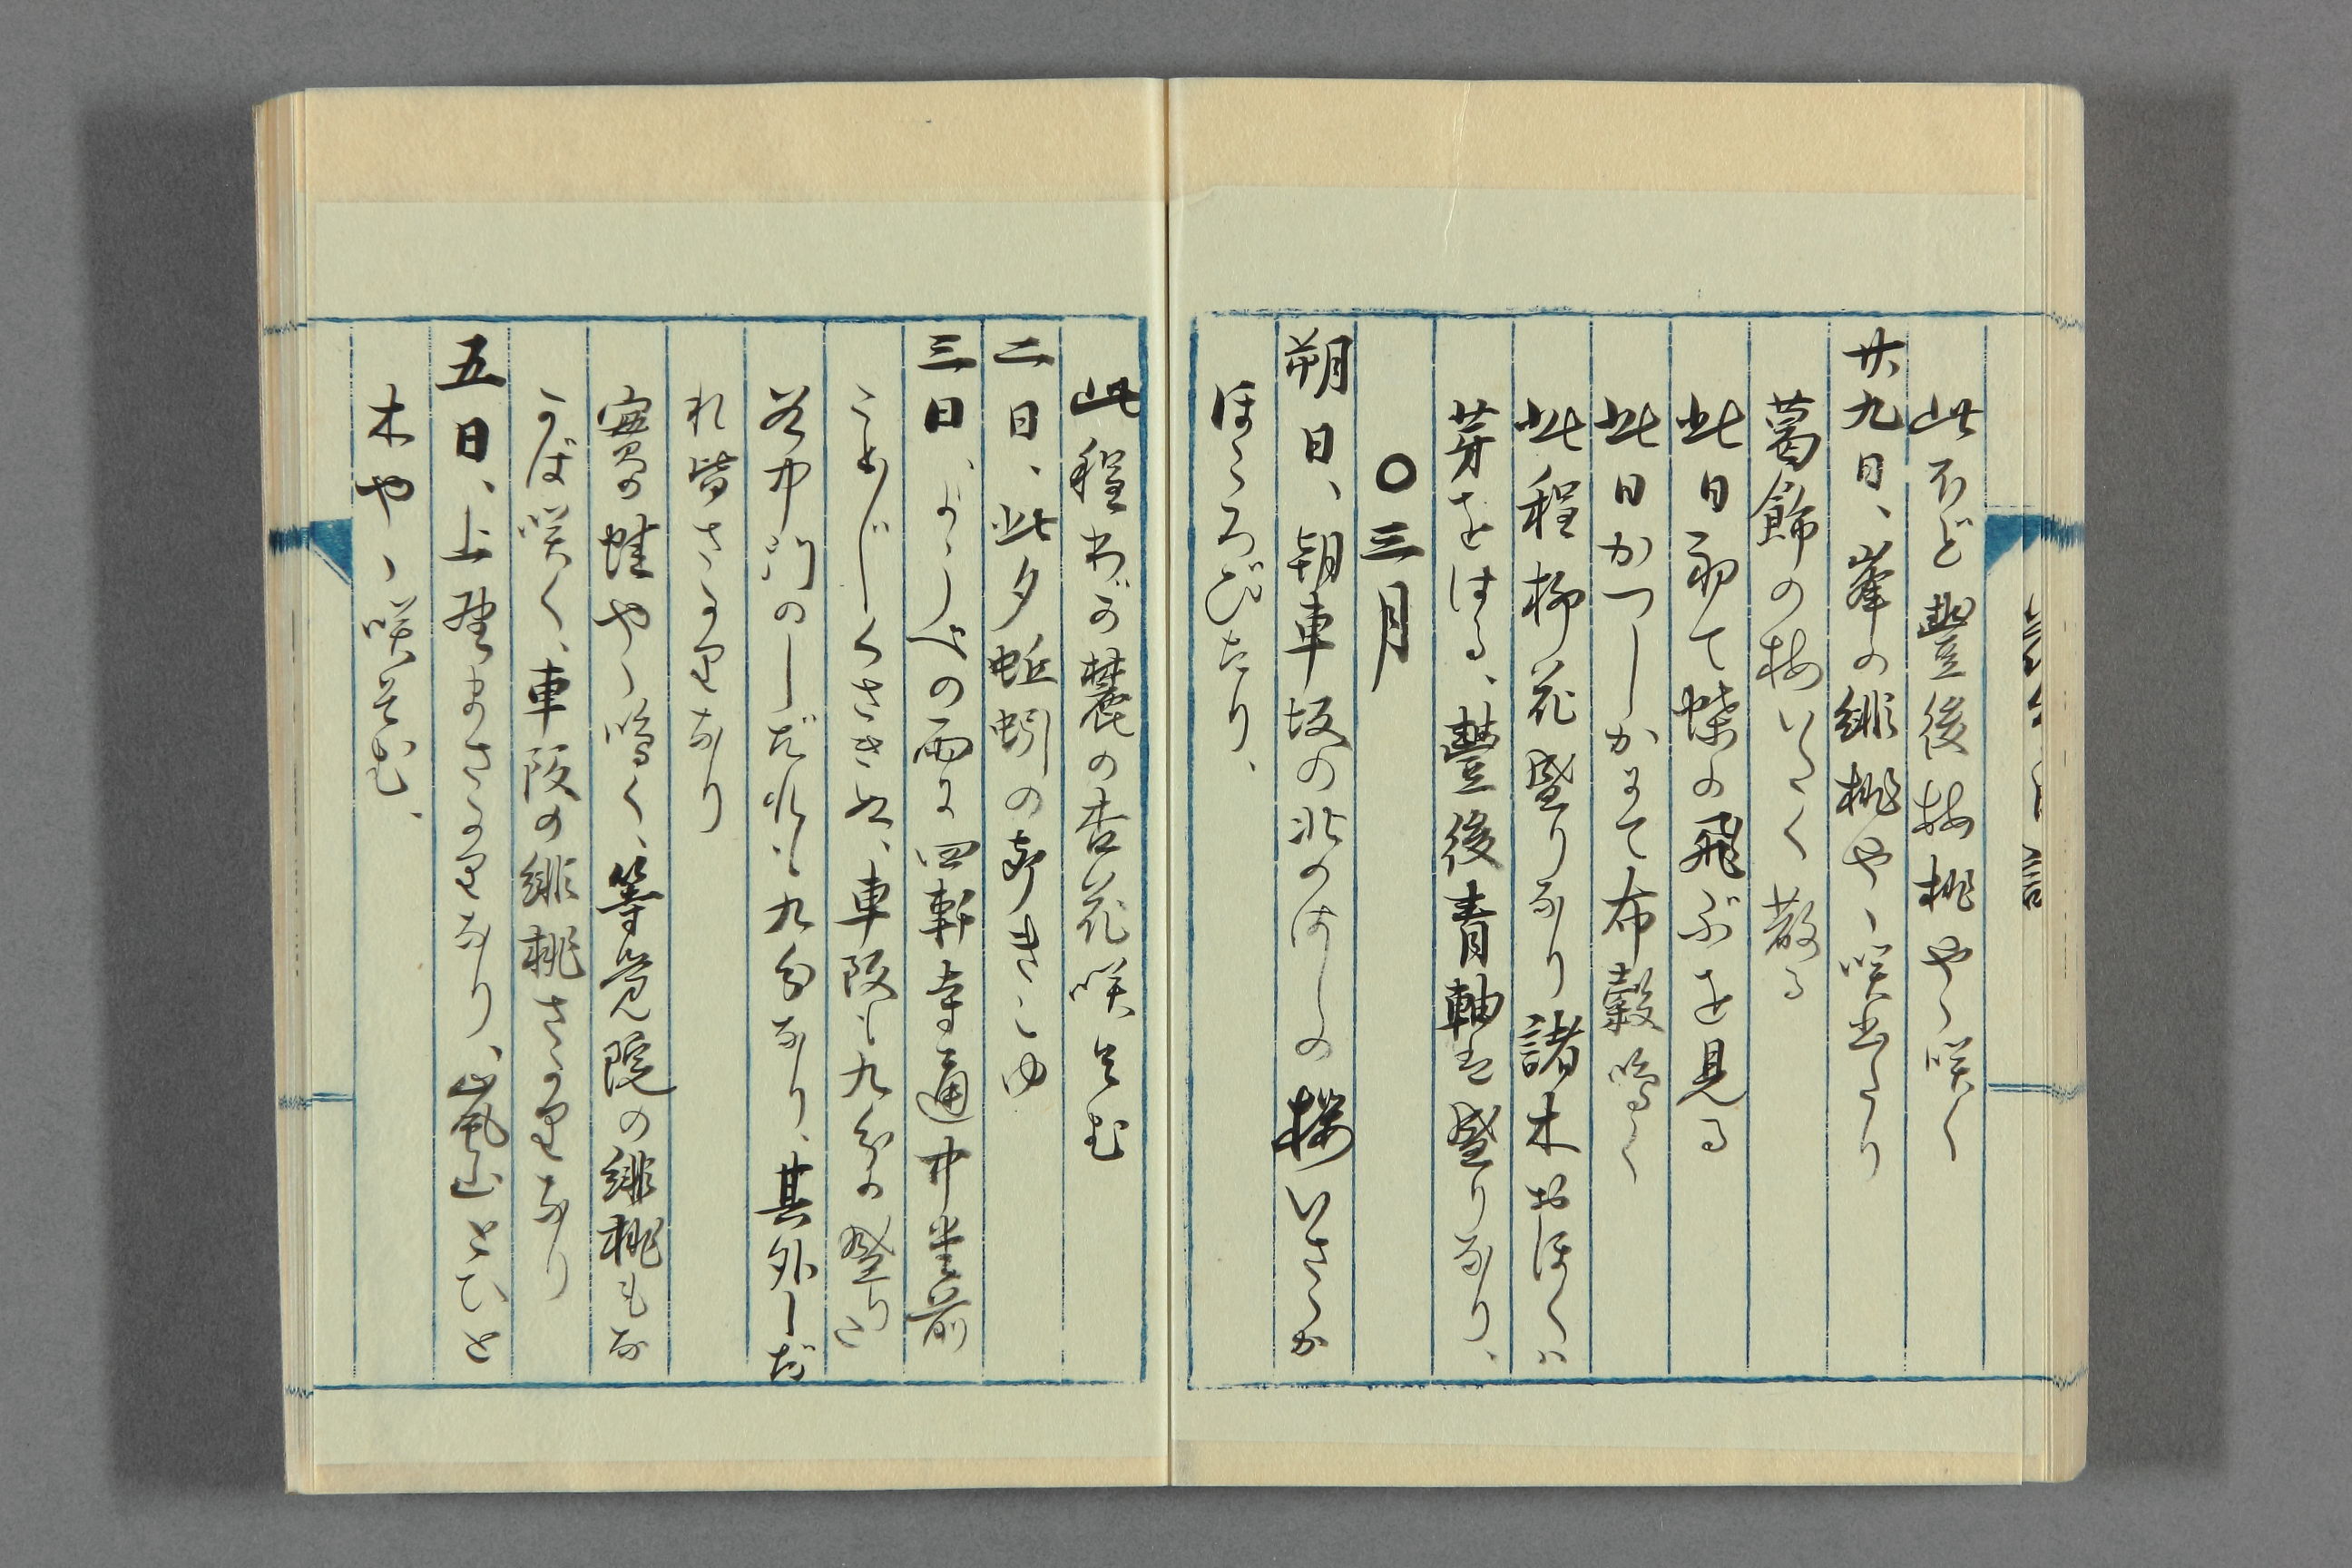 此ほど豊後梅桃やゝ咲く
廿九日、峯の緋桃やゝ咲出たり
葛飾の梅いたく散る
此日初て蝶の飛ぶを見る
此日かつしかにて布穀鳴く
此程柳花盛りなり諸木おほくハ
芽をはる、豊後青軸は盛りなり、
〇三月
朔日、朔車坂の北のはしの桜いさゝか
ほころびたり、
此程わが麓の杏花咲そむ
二日、此夕蚯蚓の声きこゆ
三日、ようべの雨に四軒寺通中堂前
こめじくさきぬ、車阪も九分の盛り
谷中門のしだれも九分なり、其外しだ
れ皆さかりなり
實の蛙やゝ鳴く、等覚院の緋桃もな
かば咲く、車阪の緋桃さかりなり
五日、上野まさかりなり、嵐山とひと
木やゝ咲そむ、